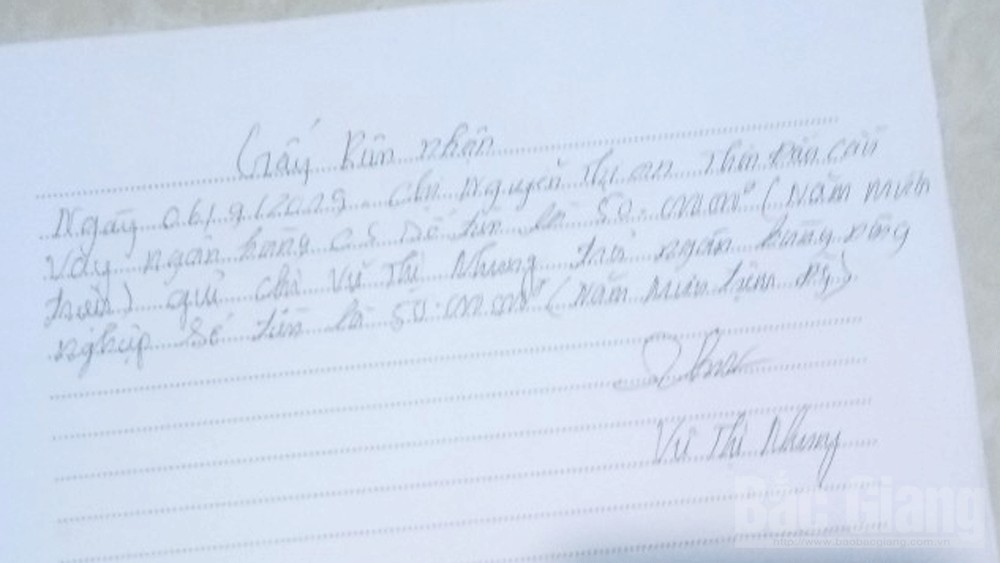 Giấy biên nhận
Ngày 06/9/2019 chị Nguyễn Thị an Thôn Đần cầu
Vay ngân hàng cs số tiền là 50.000.000đ (Năm mươi
triệu) gửi chị Vũ Thị Nhung trả ngân hàng nông
nghiệp số tiền là 50.000.000đ (Năm mươi triệu đ)
Vũ Thị Nhung
Bắc Giang
http://www.baobacgiang.com.vn